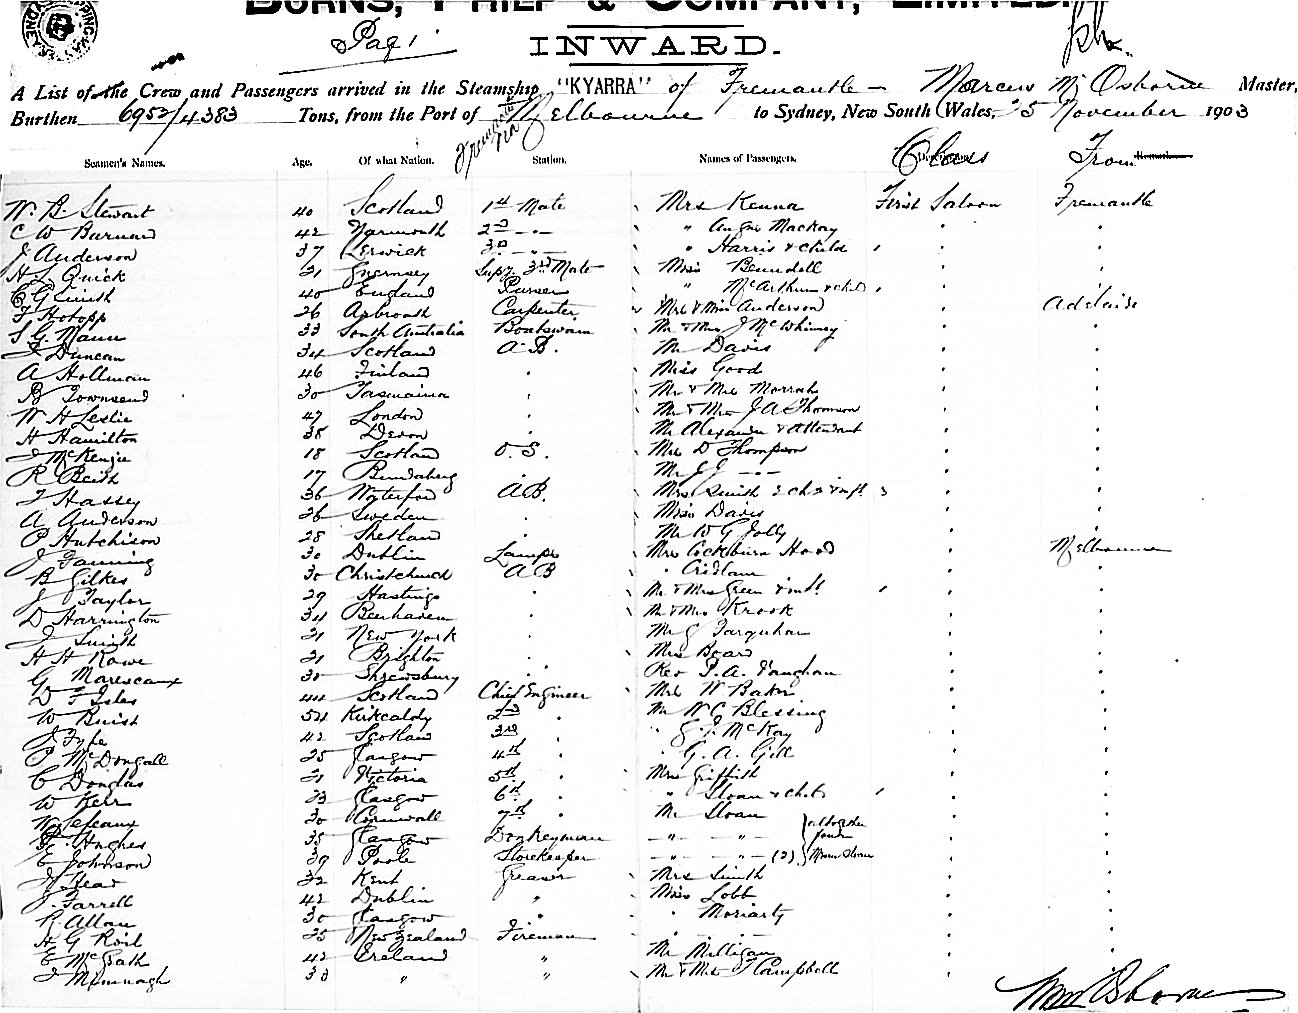 BURNS, PHILP & COMPANY, LIMITED.
Pag 1
INWARD.
A List of the Crew and Passengers arrived in the Steamship "KYARRA" of Fremantle - Marcus M Osborne Master,
Burthen 6952/4383 Tons, from the Port of Fremantle via Melbourne to Sydney, New South Wales, 25 November 1903
Seamen's Names. Age. Of what Nation. Station. Names of Passengers. Class From
W. B. Stewart 40 Scotland 1st Mate Mrs Kenna First Saloon Fremantle
C W Barnard 42 Yarmouth 2nd " Angus Mackay
J Anderson 37 Lerwick 3rd " Harris & child
H L Quick 21 Guernsey Supy 3rd Mate Miss Bundell
C G Smith 40 England Purser " McArthur & child
F Hotopp 26 Arbroath Carpenter Mrs & Miss Anderson Adelaide
S G Mann 33 South Australia Boatswain Mr & Mrs J McWhinney
J Duncan 34 Scotland A.B. Mr Davis
A Hollman 46 Finland Miss Good
B Townsend 30 Tasmania Mr & Mrs Morrah
W H Leslie 47 London Mr & Mrs J A Thomson
H Hamilton 38 Devon Mr Alexander & Attendant
J McKenzie 18 Scotland O.S. Mrs D Thompson
R Beith 17 Bundaberg Mr J J "
J Hassey 36 Waterford A.B. Mrs Smith 2 ch & inft 3
A Anderson 26 Sweden Miss Davis
P Hutchison 28 Shetland Mr W G Jolly
J Fanning 30 Dublin Lamps Mrs Cockburn Hood Melbourne
B Gilkes 30 Christchurch AB " Cridlam
J Taylor 29 Hastings Mr & Mrs Green & inft
D Harrington 34 Beerhaven Mr & Mrs Krook
J Smith 21 New York Mr G Farquhar
H H Rowe 21 Brighton Mrs Board
G Marescaux 30 Shrewsbury Rev P. A. Vaughan
D F Isles 44 Scotland Chief Engineer Mrs W Baker
W Buist 54 Kirkcaldy 2nd Mr W C Blessing
J Fyfe 42 Scotland 3rd " G. J. McKay
P McDongall 25 Glasgow 4th " G. A. Gill
C Douglas 21 Victoria 5th Mrs Griffith
W Kerr 23 Glasgow 6th " Sloan & child
30 Cornwall 7th Mr Sloan
Hughes 35 Glasgow Donkeyman " "
E Johnson 39 Poole Storekeeper " " (2)
J Hear 32 Kent Greaser Mrs Smith
J. Farrell 42 Dublin " Miss Lobb
R. Allan 30 Glasgow " " Moriarty
H G Roil 25 New Zealand Fireman
E McGrath 42 Ireland " Mr Milligan
J Mimnagh 33 " " Mr & Mrs J Campbell